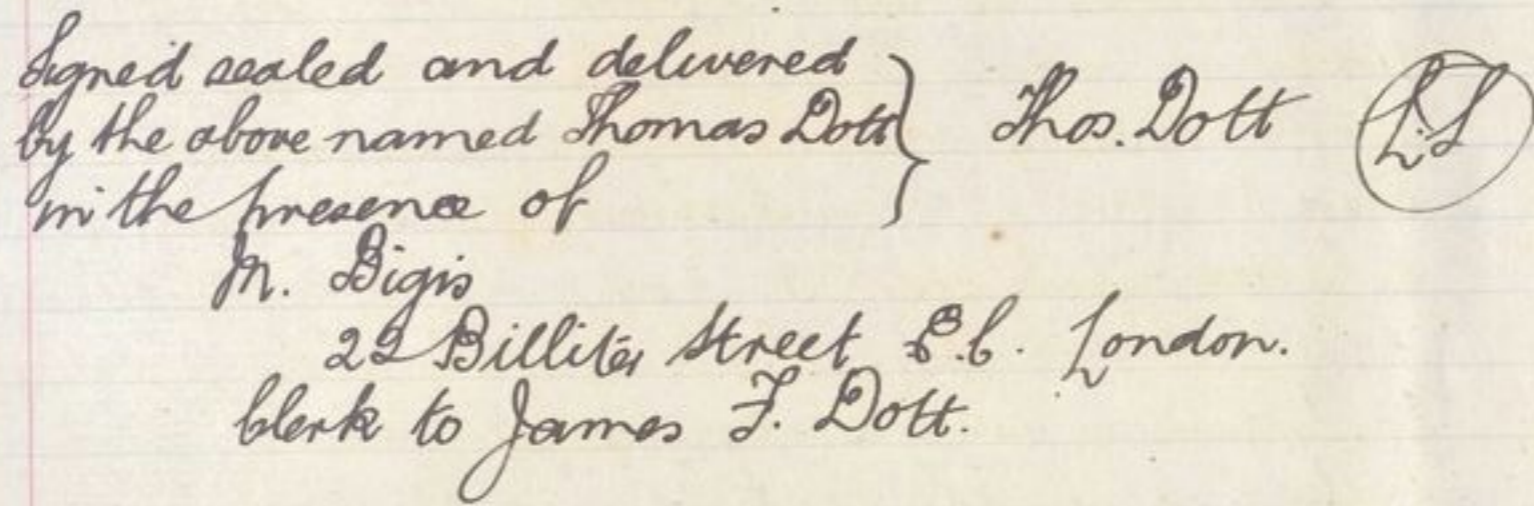 Signed sealed and delivered
by the above named Thomas Dott } Thos. Dott L.S
in the presence of
M. Bigis
22 Billiter Street E.C. London.
Clerk to James F. Dott.